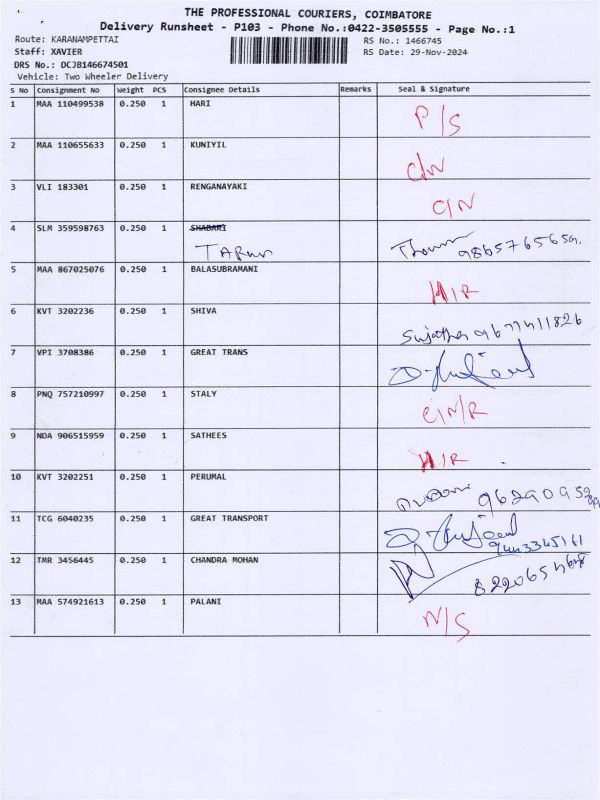 THE PROFESSIONAL COURIERS, COIMBATORE
Delivery Runsheet - P103 - Phone No.:0422-3505555 - Page No.:1
Route: KARANAMPETTAI RS No.: 1466745
Staff: XAVIER RS Date: 29-Nov-2024
DRS No.: DCJB146674501
Vehicle: Two Wheeler Delivery
S No Consignment No Weight PCS Consignee Details Remarks Seal & Signature
1 MAA 110499538 0.250 1 HARI
P/S
2 MAA 110655633 0.250 1 KUNIYIL
C/N
3 VLI 183301 0.250 1 RENGANAYAKI
C/N
4 SLM 359598763 0.250 1 SHABARI
TARUN
5 MAA 867025076 0.250 1 BALASUBRAMANI
H/R
6 KVT 3202236 0.250 1 SHIVA
Sujatha 9677411826
7 VPI 3708386 0.250 1 GREAT TRANS
8 PNQ 757210997 0.250 1 STALY
C/N/R
9 NDA 906515959 0.250 1 SATHEES
H/R
10 KVT 3202251 0.250 1 PERUMAL
11 TCG 6040235 0.250 1 GREAT TRANSPORT
12 TMR 3456445 0.250 1 CHANDRA MOHAN
13 MAA 574921613 0.250 1 PALANI
N/S